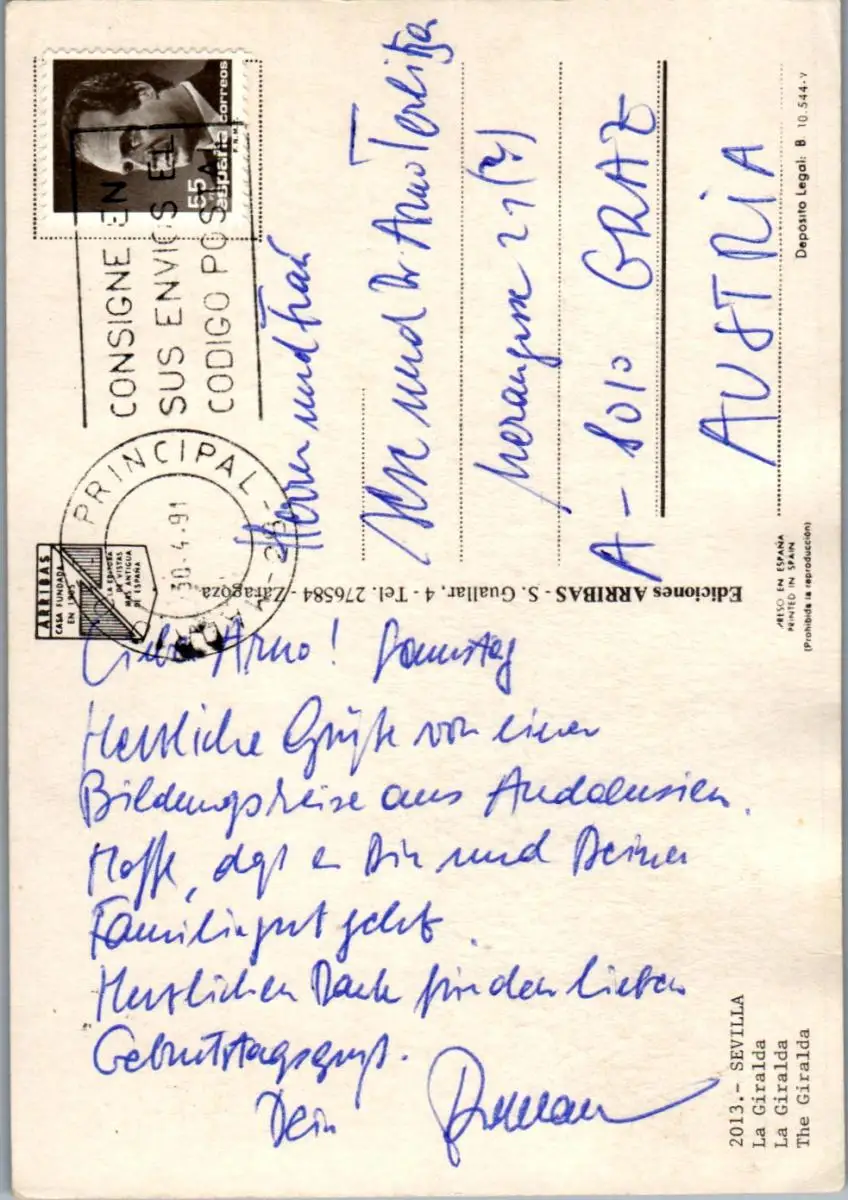 España correos
55
F.N.M.T.
CONSIGNE EN
SUS ENVIOS EL
CODIGO POSTAL
PRINCIPAL
30.4.91
ARRIBAS
CASA FUNDADA
EN
LA EDITORA
DE VISTAS
MAS ANTIGUA
DE ESPAÑA
Herrn und Frau
und Dr Arno
21
A-8010 GRAZ
AUSTRIA
Depósito Legal: B. 10.544-V
Ediciones ARRIBAS - S. Guallar, 4 - Tel. 276584 - Zaragoza
RESO EN ESPAÑA
PRINTED IN SPAIN
(Prohibida la reproducción)
Lieber Arno! Samstag
Herzliche Grüße von einer
Bildungsreise aus Andalusien.
Hoffe, daß es Dir und Deiner
Familie gut geht.
Herzlichen Dank für den lieben
Geburtstagsgruß.
Dein
2013.- SEVILLA
La Giralda
La Giralda
The Giralda